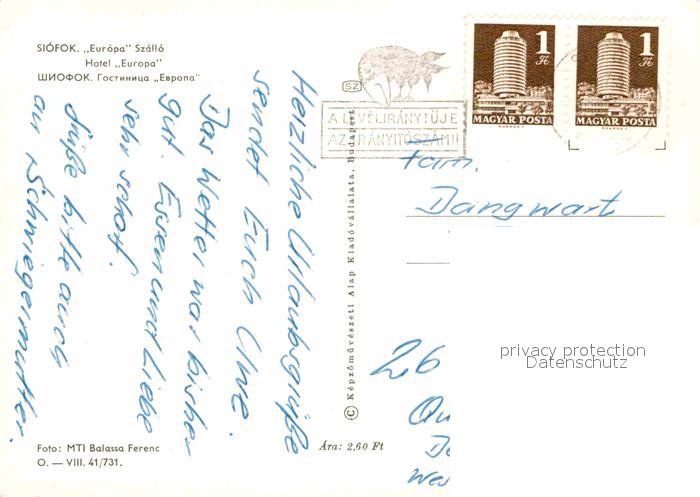 SIÓFOK. „Európa" Szálló
Hotel „Europa"
ШИОФОК. Гостиница „Европа"
Herzliche Urlaubsgrüße
sendet Euch Uwe.
Das Wetter war bisher
gut. Essen und Liebe
sehr scharf.
Grüße bitte auch
an Schwiegermutter.
Foto: MTI Balassa Ferenc
O. — VIII. 41/731.
Ára: 2,60 Ft
© Képzőművészeti Alap Kiadóvállalata, Budapest
SZ
A LEVÉL IRÁNYTŰJE
AZ IRÁNYÍTÓSZÁM!!
1 Ft
MAGYAR POSTA
1 Ft
MAGYAR POSTA
Fam.
Dangwart
26
privacy protection
Datenschutz